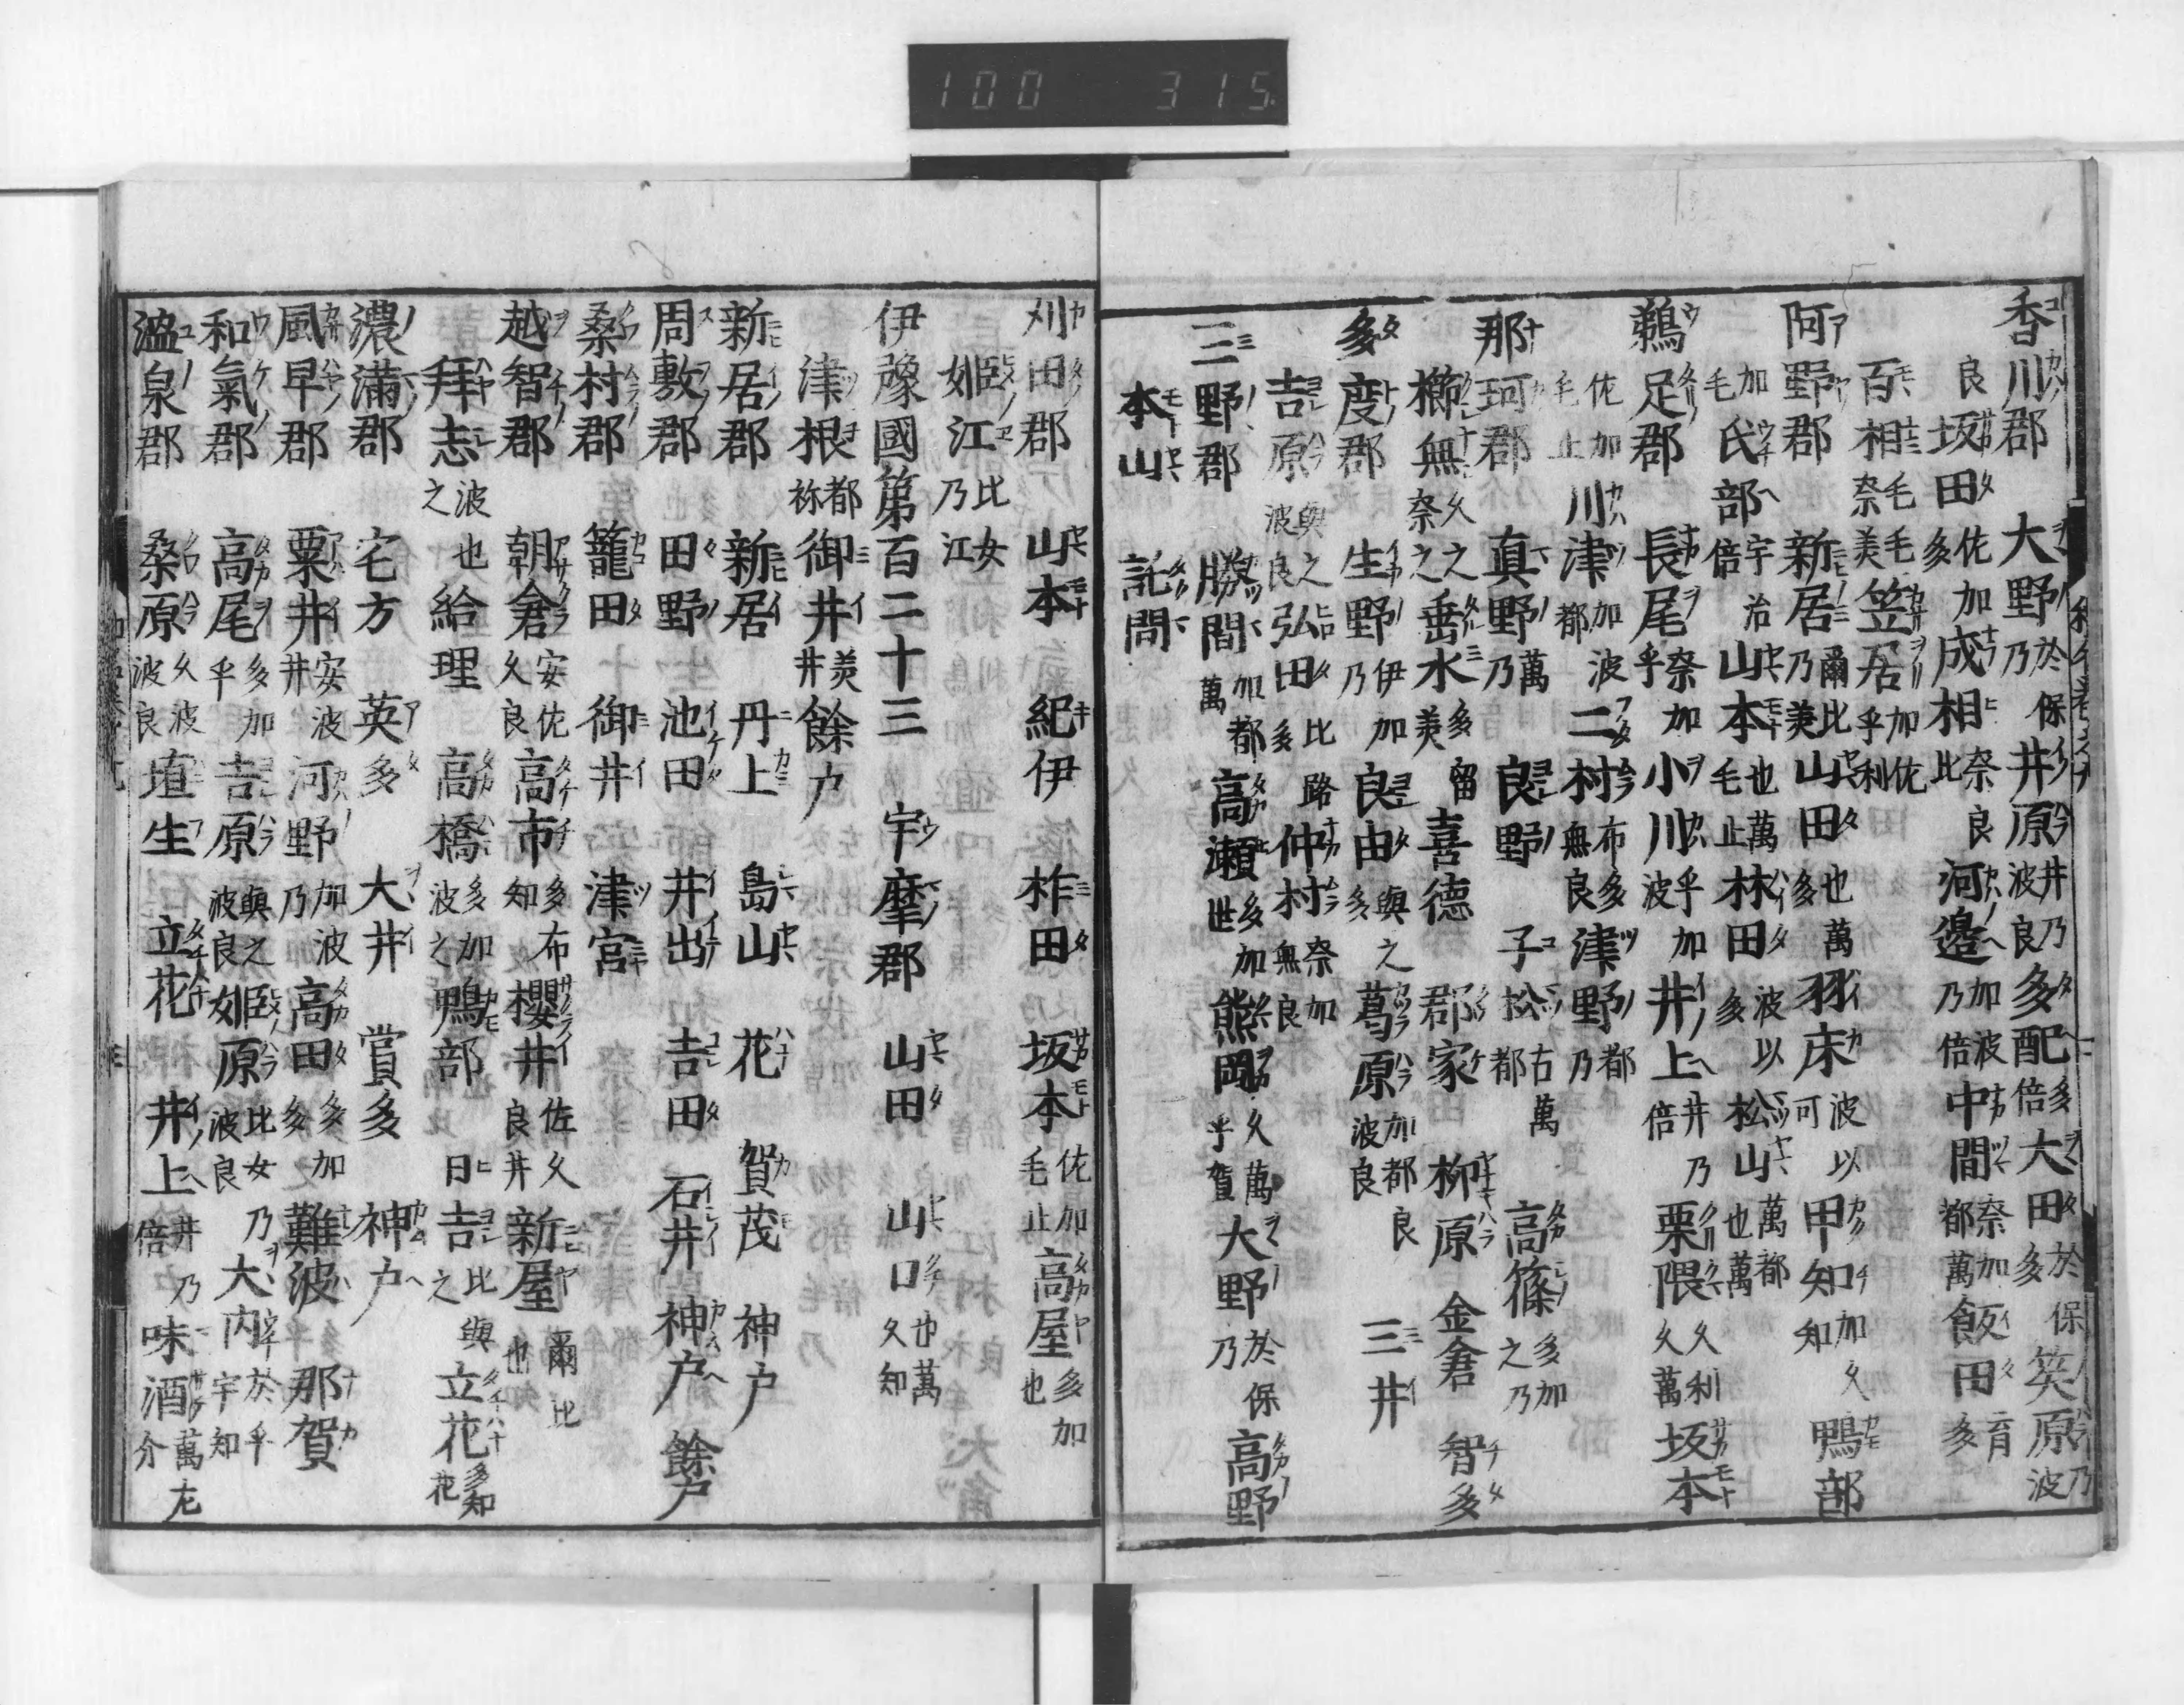 100 315
香川郡 大野於保乃 井原井乃波良 多配多倍 大田於保多 笶原乃波
良 坂田佐加多 成相奈良比 河邊加波乃倍 中間奈加都萬 飯田育多
百相毛毛奈美 笠居加佐乎利
阿野郡 新居爾比乃美 山田也萬多 羽床波以可 甲知加久知 鴨部
加毛 氏部宇治倍 山本也萬毛止 林田波以多 松山萬都也萬
鵜足郡 長尾奈加乎 小川乎加波 井上井乃倍 栗隈久利久萬 坂本
佐加毛止 川津加波都 二村布多無良 津野都乃
那珂郡 真野萬乃 良野 子松古萬都 高篠多加之乃
櫛無久之奈之 垂水多留美 喜德 郡家 柳原 金倉 智多
多度郡 生野伊加乃 良田與之多 葛原加都良波良 三井
吉原與之波良 弘田比路多 仲村奈加無良
三野郡 勝間加都萬 高瀬多加世 熊岡久萬乎賀 大野於保乃 高野
本山 託間
刈田郡 山本 紀伊 柞田 坂本佐加毛止 高屋多加也
姬江比女乃江
伊豫國第百二十三 宇摩郡 山田 山口也萬久知
津根都祢 御井美井 餘戶
新居郡 新居 丹上 島山 花 賀茂 神戶
周敷郡 田野 池田 井出 吉田 石井 神戶 餘戶
桑村郡 籠田 御井 津宮
越智郡 朝倉安佐久良 高市多布知 櫻井佐久良井 新屋爾比也
拜志波也之 給理 高橋多加波之 鴨部 日吉比與之 立花多知花
濃滿郡 宅方 英多 大井 賞多 神戶
風早郡 粟井安波井 河野加波乃 高田多加多 難波 那賀
和氣郡 高尾多加乎 吉原與之波良 姬原比女乃波良 大内於乎宇知
溫泉郡 桑原久波波良 埴生 立花 井上井乃倍 味酒萬左介